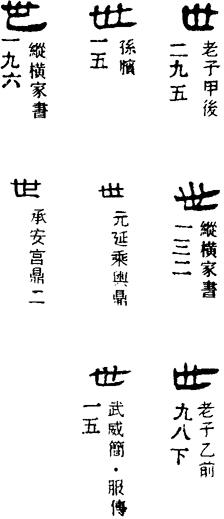 世 老子甲後二九五
世 孫臏一五
世 縱橫家書一九六
世 縱橫家書一三二
世 元延乘輿鼎
世 承安宮鼎二
世 老子乙前九八下
世 武威簡・服傳一五